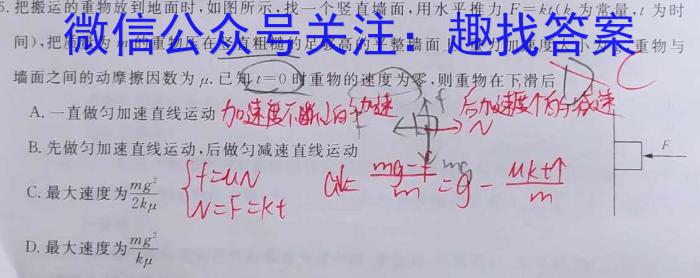 5.把搬运的重物放到地面时,如图所示,找一个竖直墙面,用水平推力F=kt(k为常量,t为时
间),把质量为m的重物压在竖直粗糙的足够高的平整墙面上,重力加速度大小为g,重物与
微信公众号关注:趣找答案
墙面之间的动摩擦因数为μ.已知t=0时重物的速度为零,则重物在下滑后
D C
A.一直做匀加速直线运动 加速度不断 加速 后加速度 减速
f
N
mg
B.先做匀加速直线运动,后做匀减速直线运动
F
C.最大速度为mg²/2kμ
{f=μN
N=F=kt
a= mg-f/m =g- μkt↑/m
D.最大速度为mg²/kμ